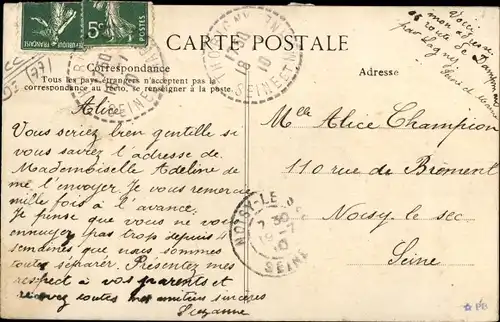 CARTE POSTALE
Correspondance
Tous les pays étrangers n'acceptent pas la
correspondance au recto, se renseigner à la poste.
Adresse
Voici
mon adresse
route de
par Lagny
Seine et Marne
Alice
Vous seriez bien gentille si
vous savez l'adresse de
Mademoiselle Adeline de
me l'envoyer. Je vous remercie
mille fois à l'avance.
Je pense que vous ne vous
ennuyez pas trop depuis 4
semaines que nous sommes
toutes séparées. Présentez mes
respect à vos parents et
recevez toutes mes amitiés sincères
Suzanne
Mlle Alice Champion
110 rue de Brément
Noisy le sec
Seine
5c
POSTES
NOISY-LE
SEINE
PB